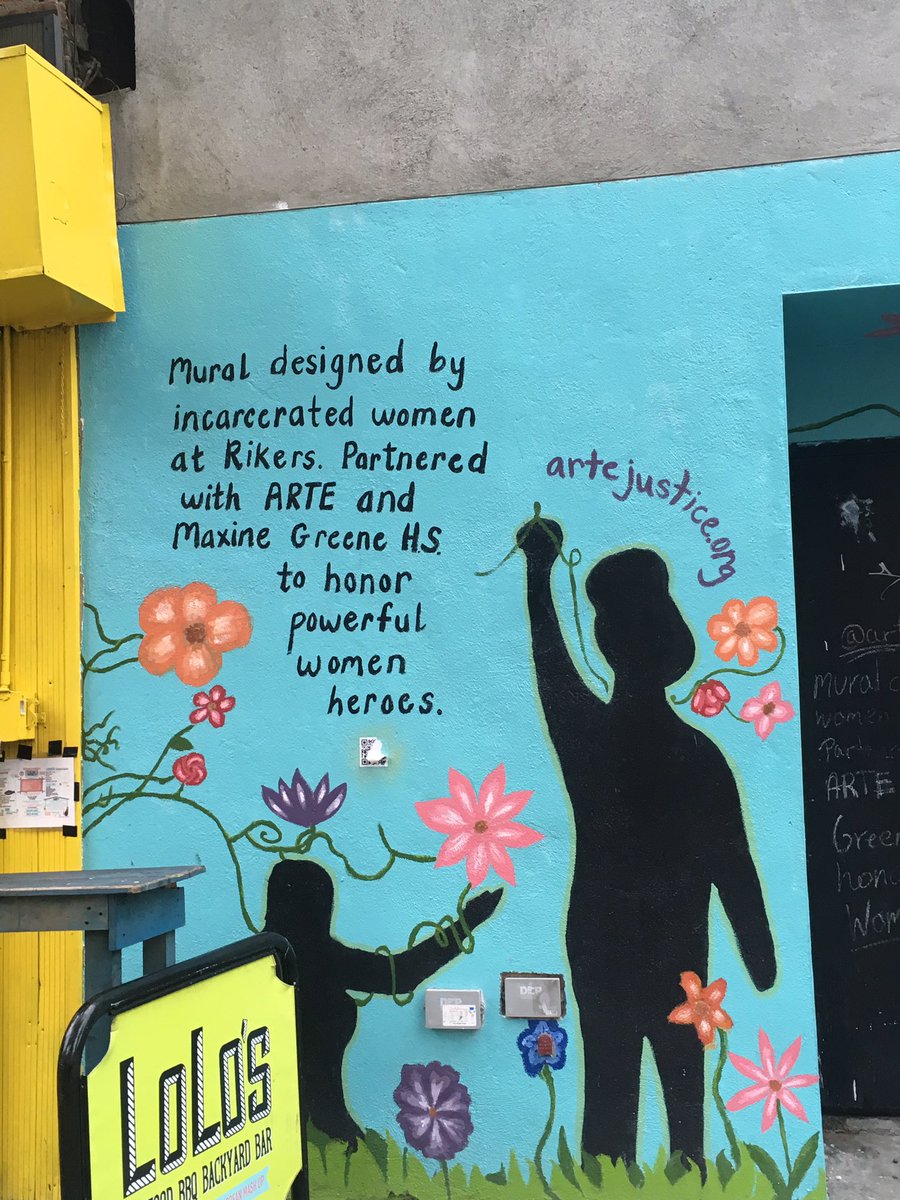 Mural designed by
incarcerated women
at Rikers. Partnered
with ARTE and
Maxine Greene H.S.
to honor
powerful
women
heroes.
artejustice.org
DEP
DEP
@art
Mural
women
ARTE
Green
hono
Wom
LoLo's
BBQ BACKYARD BAR
MASH UP